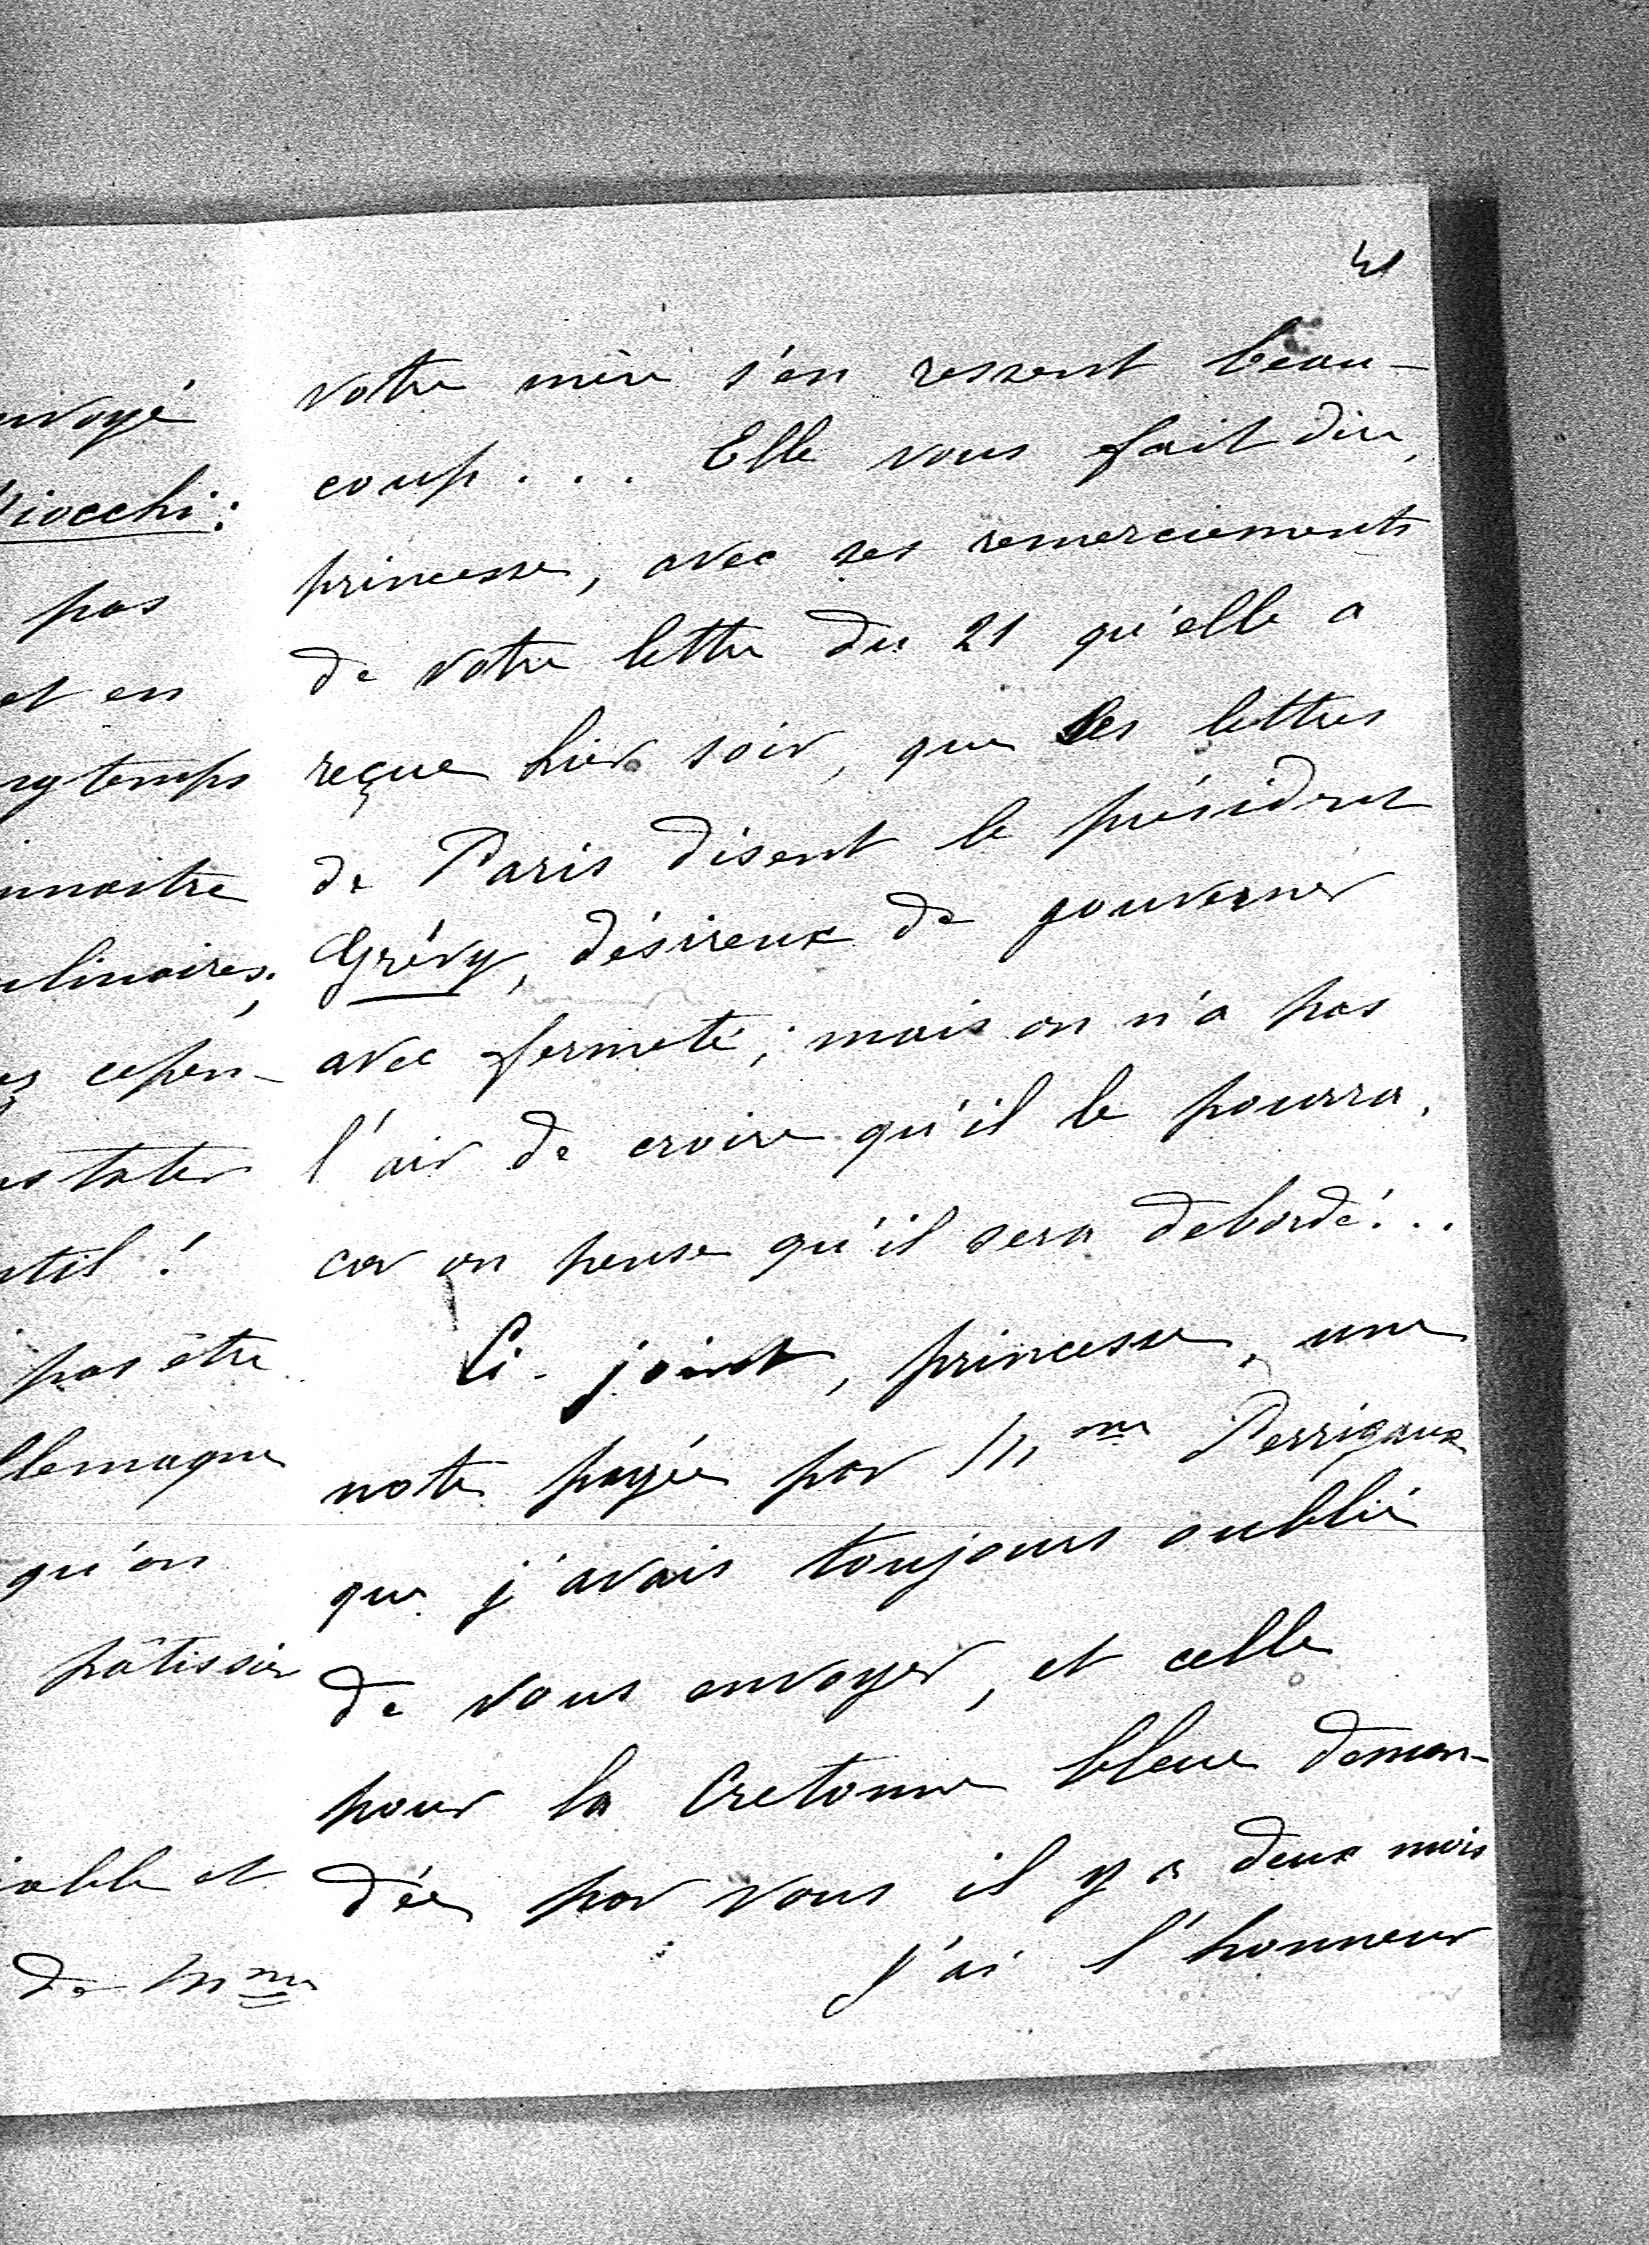 nvoyé
iocchi:
pas
et en
ngtemps
nnaitre
ulinaires;
ez cepen-
nstater
ntil!
pas être
llemagne
qu'on
pâtissier
iable et
de Mme
votre mère s'en ressent beau-
coup... Elle vous fait dire,
princesse, avec ses remerciements
de votre lettre du 21 qu'elle a
reçue hier soir, que les lettres
de Paris disent le président
Grévy, désireux de gouverner
avec fermeté; mais on n'a pas
l'air de croire qu'il le pourra,
car on pense qu'il sera debordé!..
Ci-joint, princesse, une
note payée par Mme Perrigaux
que j'avais toujours oublié
de vous envoyer, et celle
pour la Cretonne bleue deman-
dée par vous il y a deux mois
J'ai l'honneur